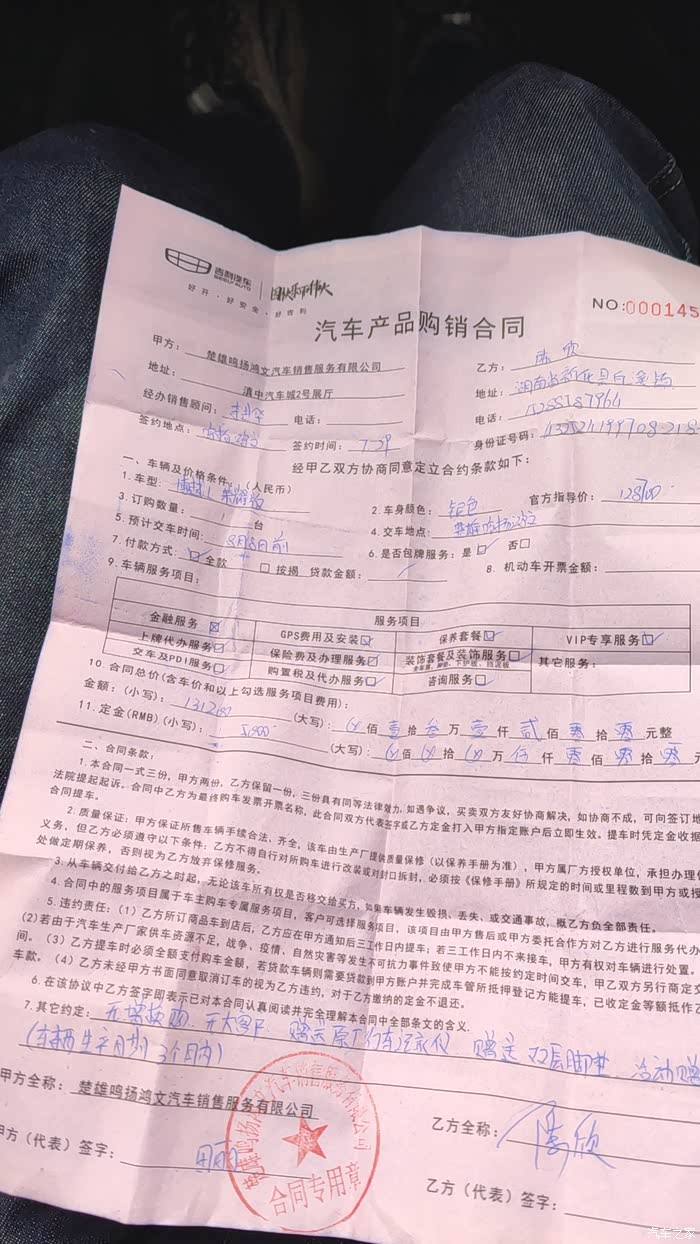 吉利汽车
GEELY AUTO
好开·好安全·好吉利
NO:000145
汽车产品购销合同
甲方：楚雄鸣扬鸿文汽车销售服务有限公司
乙方：
地址：滇中汽车城2号展厅
地址：
经办销售顾问： 电话：
电话：
签约地点： 签约时间：7.29
身份证号码：
经甲乙双方协商同意定立合约条款如下：
一、车辆及价格条件：（人民币）
1.车型： 2.车身颜色： 官方指导价：
3.订购数量： 台 4.交车地点：
5.预计交车时间： 6.是否包牌服务：是☑ 否□
7.付款方式：☑全款 □按揭 贷款金额： 8. 机动车开票金额：
9.车辆服务项目：
服务项目
金融服务 GPS费用及安装 保养套餐 VIP专享服务
上牌代办服务 保险费及办理服务 装饰套餐及装饰服务 其它服务：
交车及PDI服务 购置税及代办服务 咨询服务
10.合同总价(含车价和以上勾选服务项目费用)：
金额：(小写)：131200 (大写)： 佰壹拾叁万壹仟贰佰零拾零元整
11.定金(RMB)(小写)： (大写)： 佰 拾 万 仟零佰零拾零元
二、合同条款：
1.本合同一式三份，甲方两份，乙方保留一份，三份具有同等法律效力，如遇争议，买卖双方友好协商解决，如协商不成，可向签订地
法院提起起诉。合同中乙方为最终购车发票开票名称，此合同双方代表签字或乙方定金打入甲方指定账户后立即生效。提车时凭定金收据
合同提车。
2.质量保证：甲方保证所售车辆手续合法、齐全，该车由生产厂提供质量保修（以保养手册为准），甲方属厂方授权单位，承担办理
义务，但乙方必须遵守以下条件：乙方不得自行对所购车进行改装或对封口拆封，必须按《保修手册》所规定的时间或里程数到甲方或授
处做定期保养，否则视为乙方放弃保修服务。
3.从车辆交付给乙方之时起，无论该车所有权是否移交给买方，如果车辆发生毁损、丢失、或交通事故，概乙方负全部责任。
4.合同中的服务项目属于车主购车专属服务项目，客户可选择服务项目，该项目由甲方售后或甲方委托合作方对乙方进行服务代办
5.违约责任：（1）乙方所订商品车到店后，乙方应在甲方通知后三工作日内提车；若三工作日内不来接车，甲方有权对车辆进行处置。
(2)若由于汽车生产厂家供车资源不足，战争、疫情、自然灾害等发生不可抗力事件致使甲方不能按约定时间交车，甲乙双方另行商定交
间。（3）乙方提车时必须全额支付购车金额，若贷款车辆则需要贷款到甲方账户并完成车管所抵押登记方能提车，已收定金等额抵作
车款。（4）乙方未经甲方书面同意取消订车的视为乙方违约，对于乙方缴纳的定金不退还。
6.在该协议中乙方签字即表示已对本合同认真阅读并完全理解本合同中全部条文的含义.
7.其它约定：无增换购 无大客户 赠送原厂行车记录仪 赠送双层脚垫 活动赠
(车辆生产日期3个月内)
甲方全称：楚雄鸣扬鸿文汽车销售服务有限公司
乙方全称：
甲方（代表）签字：
乙方（代表）签字：
合同专用章
汽车之家